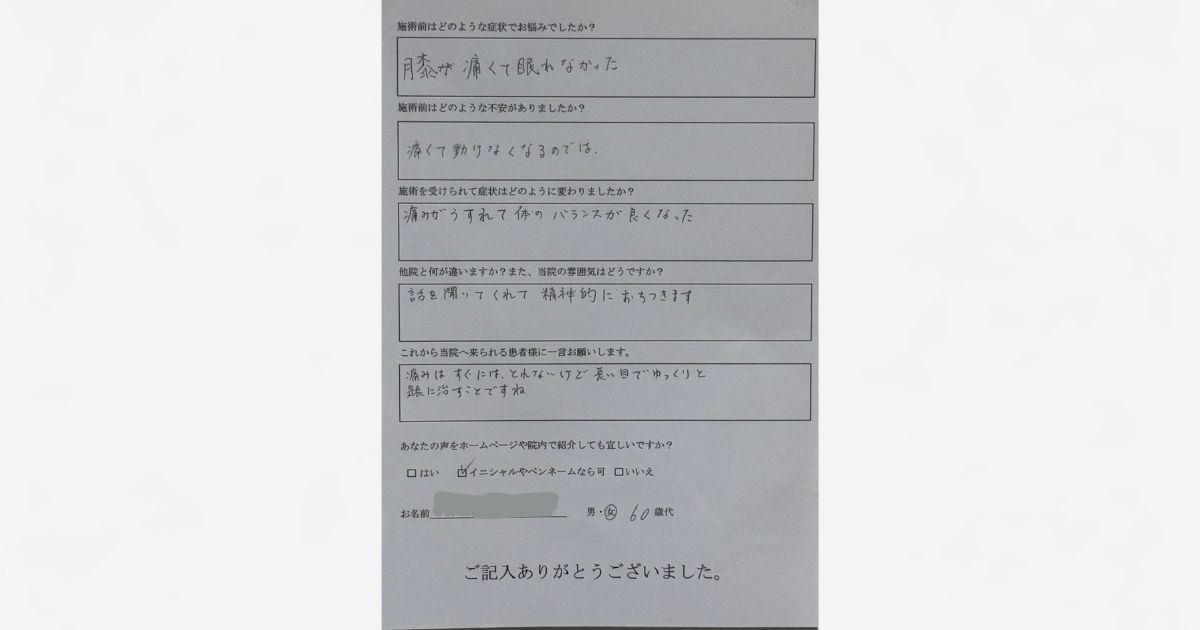 施術前はどのような症状でお悩みでしたか？
膝が痛くて眠れなかった
施術前はどのような不安がありましたか？
痛くて動けなくなるのでは.
施術を受けられて症状はどのように変わりましたか？
痛みがうすれて体のバランスが良くなった
他院と何が違いますか？また、当院の雰囲気はどうですか？
話を聞いてくれて精神的におちつきます
これから当院へ来られる患者様に一言お願いします。
痛みはすぐには、とれないけど長い目でゆっくりと
に治すことですね
あなたの声をホームページや院内で紹介しても宜しいですか？
□はい ☑イニシャルやペンネームなら可 □いいえ
お名前 男・女 60歳代
ご記入ありがとうございました。